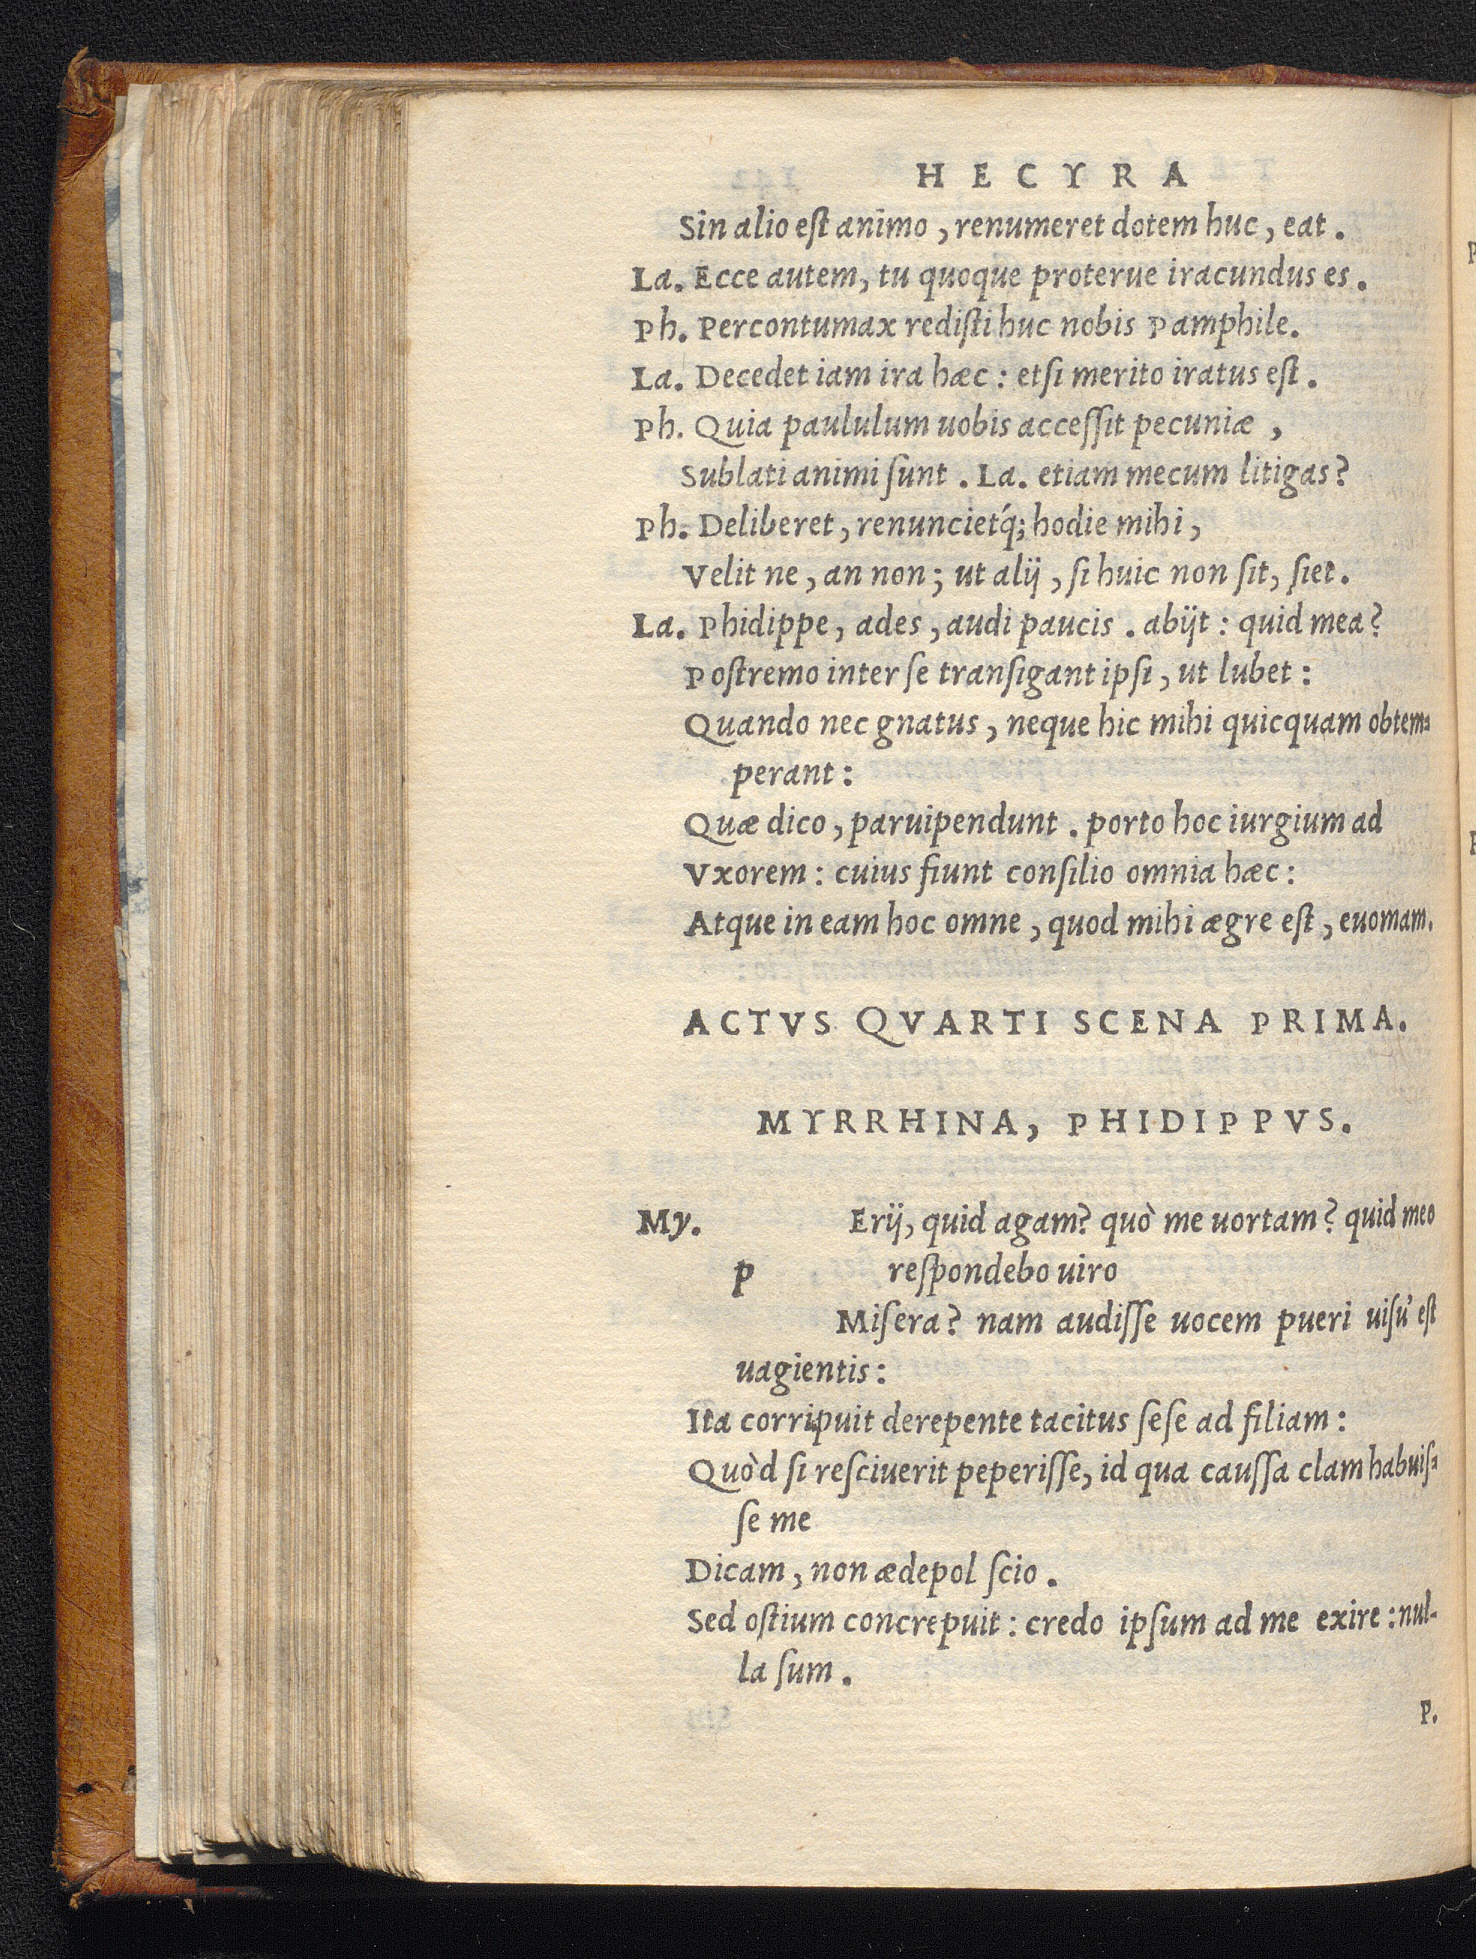 HECYRA
Sin alio eſt animo, renumeret dotem huc, eat.
La. Ecce autem, tu quoque proterue iracundus es.
Ph. Percontumax rediſti huc nobis Pamphile.
La. Decedet iam ira hæc: etſi merito iratus eſt.
Ph. Quia paululum uobis acceſſit pecuniæ,
Sublati animi ſunt. La. etiam mecum litigas?
Ph. Deliberet, renuncietq́; hodie mihi,
Velit ne, an non; ut alij, ſi huic non ſit, ſiet.
La. Phidippe, ades, audi paucis. abijt: quid mea?
Poſtremo inter ſe tranſigant ipſi, ut lubet:
Quando nec gnatus, neque hic mihi quicquam obtem=
perant:
Quæ dico, paruipendunt. porto hoc iurgium ad
Vxorem: cuius fiunt conſilio omnia hæc:
Atque in eam hoc omne, quod mihi ægre eſt, euomam.
ACTVS QVARTI SCENA PRIMA.
MYRRHINA, PHIDIPPVS.
My. Erij, quid agam? quò me uortam? quid meo
p reſpondebo uiro
Miſera? nam audiſſe uocem pueri uiſu' eſt
uagientis:
Ita corripuit derepente tacitus ſeſe ad filiam:
Quòd ſi reſciuerit peperiſſe, id qua cauſſa clam habuiſ=
ſe me
Dicam, non ædepol ſcio.
Sed oſtium concrepuit: credo ipſum ad me exire: nul-
la ſum.
P.